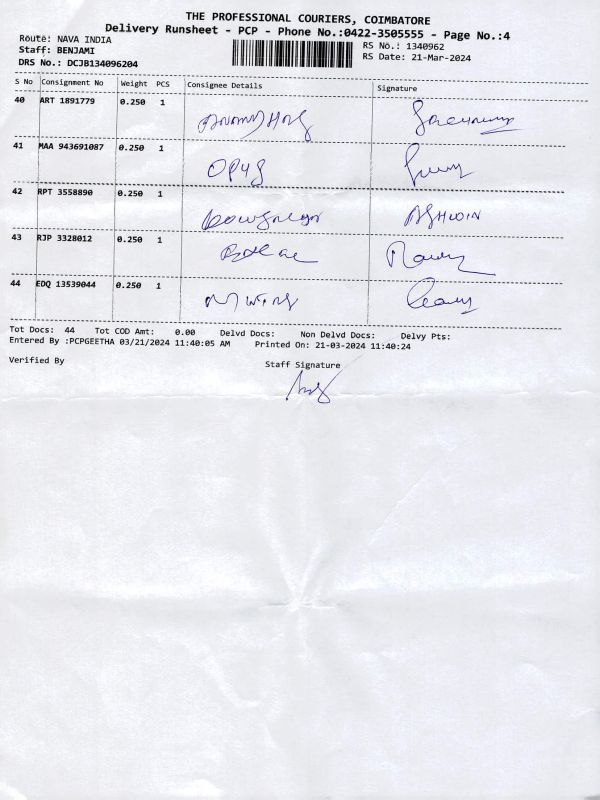 THE PROFESSIONAL COURIERS, COIMBATORE
Delivery Runsheet - PCP - Phone No.:0422-3505555 - Page No.:4
Route: NAVA INDIA RS No.: 1340962
Staff: BENJAMI RS Date: 21-Mar-2024
DRS No.: DCJB134096204
S No Consignment No Weight PCS Consignee Details Signature
40 ART 1891779 0.250 1
41 MAA 943691087 0.250 1
42 RPT 3558890 0.250 1 ASHWIN
43 RJP 3328012 0.250 1
44 EDQ 13539044 0.250 1
Tot Docs: 44 Tot COD Amt: 0.00 Delvd Docs: Non Delvd Docs: Delvy Pts:
Entered By :PCPGEETHA 03/21/2024 11:40:05 AM Printed On: 21-03-2024 11:40:24
Verified By Staff Signature